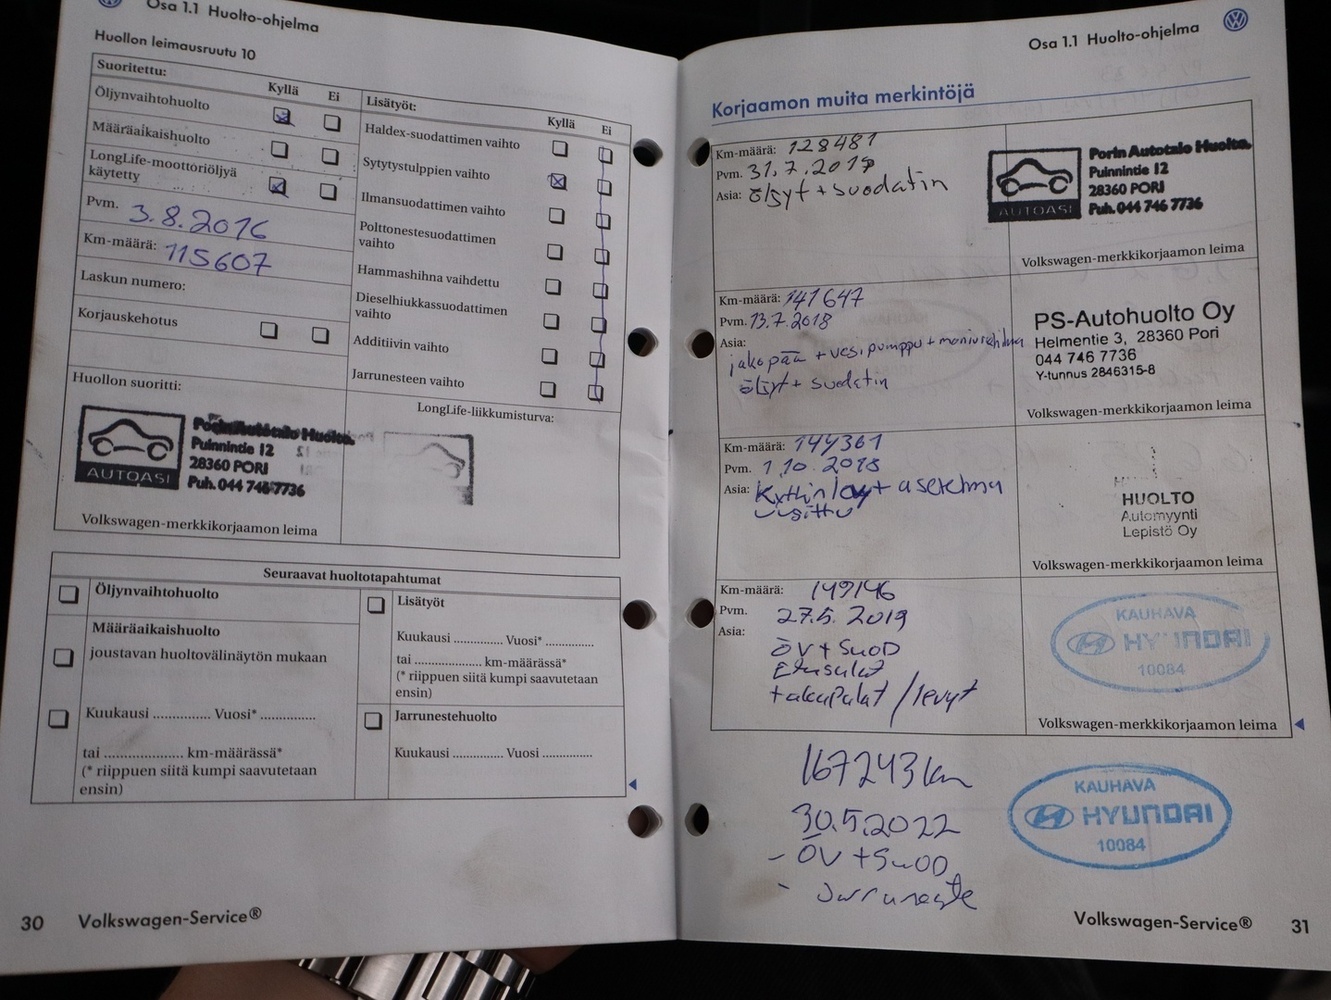 Osa 1.1 Huolto-ohjelma
Huollon leimausruutu 10
Suoritettu:
Kyllä
Ei
Öljynvaihtohuolto
Määräaikaishuolto
LongLife-moottoriöljyä
käytetty
Pvm. 3.8.2016
Km-määrä: 115607
Laskun numero:
Korjauskehotus
Lisätyöt:
Kyllä
Ei
Haldex-suodattimen vaihto
Sytytystulppien vaihto
Ilmansuodattimen vaihto
Polttonestesuodattimen
vaihto
Hammashihna vaihdettu
Dieselhiukkassuodattimen
vaihto
Additiivin vaihto
Jarrunesteen vaihto
Huollon suoritti:
AUTOASI
Porin Autotalo Huolto.
Puinnintie 12
28360 PORI
Puh. 044 746 7736
Volkswagen-merkkikorjaamon leima
LongLife-liikkumisturva:
Seuraavat huoltotapahtumat
Öljynvaihtohuolto
Määräaikaishuolto
joustavan huoltovälinäytön mukaan
Kuukausi .............. Vuosi* ..............
tai .................... km-määrässä*
(* riippuen siitä kumpi saavutetaan
ensin)
Lisätyöt
Kuukausi ............. Vuosi* ............
tai ................. km-määrässä*
(* riippuen siitä kumpi saavutetaan
ensin)
Jarrunestehuolto
Kuukausi ............. Vuosi .............
30 Volkswagen-Service®
Osa 1.1 Huolto-ohjelma
Korjaamon muita merkintöjä
Km-määrä: 128481
Pvm. 31.7.2017
Asia: öljyt + suodatin
AUTOASI
Porin Autotalo Huolto.
Puinnintie 12
28360 PORI
Puh. 044 746 7736
Volkswagen-merkkikorjaamon leima
Km-määrä: 141647
Pvm. 13.7.2018
Asia:
jakopää + vesipumppu + moniurahihna
öljyt + suodatin
PS-Autohuolto Oy
Helmentie 3, 28360 Pori
044 746 7736
Y-tunnus 2846315-8
Volkswagen-merkkikorjaamon leima
Km-määrä: 144361
Pvm. 1.10.2018
Asia: Kytkinlevy + asetelma
uusittu
HUOLTO
Automyynti
Lepistö Oy
Volkswagen-merkkikorjaamon leima
Km-määrä: 149146
Pvm. 27.5.2019
Asia:
ÖV + SuoD
Etusulat
takapalat / levyt
KAUHAVA
HYUNDAI
10084
Volkswagen-merkkikorjaamon leima
167243 km
30.5.2022
- ÖV + SuOD
- Jarruneste
KAUHAVA
HYUNDAI
10084
Volkswagen-Service® 31